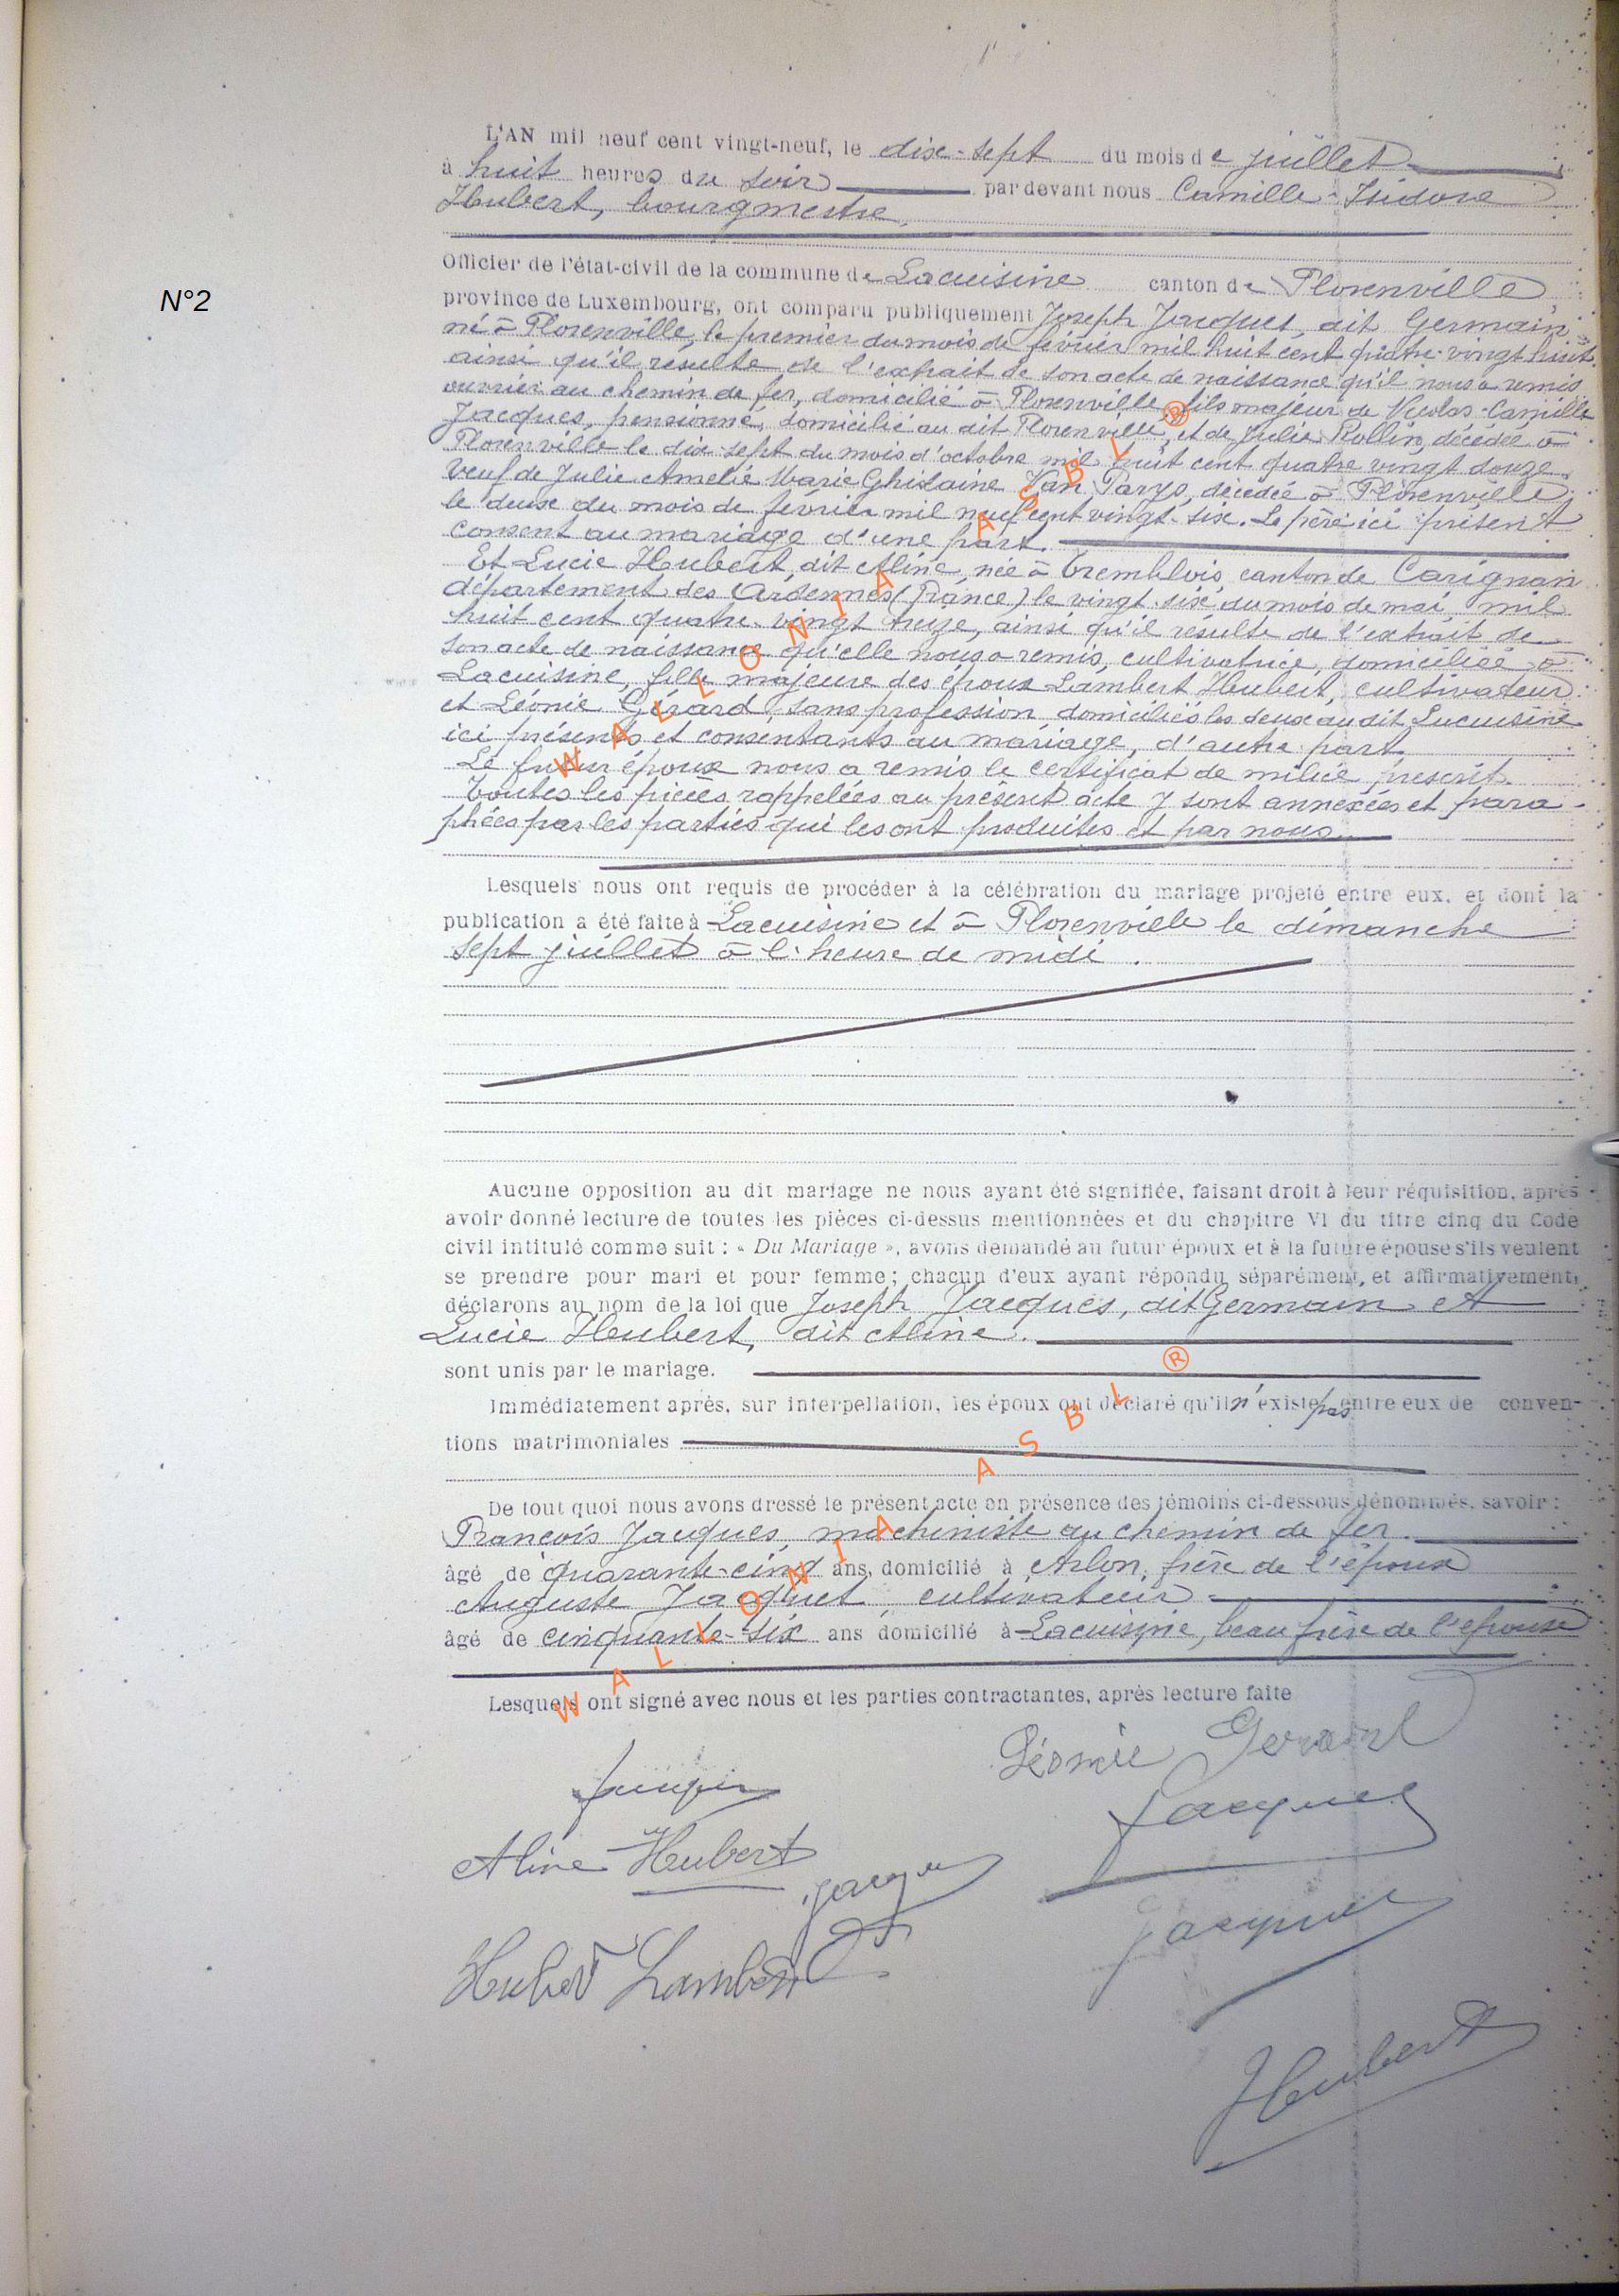 L'AN mil neuf cent vingt-neuf, le dix-sept du mois de juillet
à huit heures du soir par devant nous Camille-Isidore
Hubert, bourgmestre,
Officier de l'état-civil de la commune de Lacuisine canton de Florenville
N°2
province de Luxembourg, ont comparu publiquement Joseph Jacques, dit Germain
né à Florenville, le premier du mois de février mil huit cent quatre-vingt huit
ainsi qu'il résulte de l'extrait de son acte de naissance qu'il nous a remis
ouvrier au chemin de fer, domicilié à Florenville, fils majeur de Nicolas-Camille
Jacques, pensionné, domicilié au dit Florenville, et de Julie Rollin, décédée à
Florenville le dix-sept du mois d'octobre mil huit cent quatre vingt douze
veuf de Julie Amélie Marie Ghislaine Van Parys, décédée à Florenville
le deux du mois de février mil neuf cent vingt-six. Le père ici présent
consent au mariage d'une part.
Et Lucie Hubert, dit Aline, née à Tremblois, canton de Carignan
département des Ardennes (France) le vingt-six du mois de mai mil
huit cent quatre-vingt treize, ainsi qu'il résulte de l'extrait de
son acte de naissance qu'elle nous a remis, cultivatrice, domiciliée à
Lacuisine, fille majeure des époux Lambert Hubert, cultivateur
et Léonie Gérard, sans profession, domiciliés les deux au dit Lacuisine
ici présents et consentants au mariage, d'autre part.
Le futur époux nous a remis le certificat de milice prescrit.
Toutes les pièces rappelées au présent acte y sont annexées et para-
phées par les parties qui les ont produites et par nous.
Lesquels nous ont requis de procéder à la célébration du mariage projeté entre eux, et dont la
publication a été faite à Lacuisine et à Florenville le dimanche
sept juillet à l'heure de midi.
Aucune opposition au dit mariage ne nous ayant été signifiée, faisant droit à leur réquisition, après
avoir donné lecture de toutes les pièces ci-dessus mentionnées et du chapitre VI du titre cinq du Code
civil intitulé comme suit : « Du Mariage », avons demandé au futur époux et à la future épouse s'ils veulent
se prendre pour mari et pour femme ; chacun d'eux ayant répondu séparément et affirmativement,
déclarons au nom de la loi que Joseph Jacques, dit Germain et
Lucie Hubert, dit Aline.
sont unis par le mariage.
Immédiatement après, sur interpellation, les époux ont déclaré qu'il n'existe pas entre eux de conven-
tions matrimoniales
De tout quoi nous avons dressé le présent acte en présence des témoins ci-dessous dénommés, savoir :
François Jacques, machiniste au chemin de fer.
âgé de quarante-cinq ans, domicilié à Arlon, frère de l'époux
Auguste Jacquet, cultivateur
âgé de cinquante-six ans domicilié à Lacuisine, beau frère de l'épouse
Lesquels ont signé avec nous et les parties contractantes, après lecture faite
Léonie Gérard
Jacques
Jacques
Aline Hubert
Jacques
Jacques
Hubert Lambert
Hubert
WALLONIA ASBL ®
WALLONIA ASBL ®